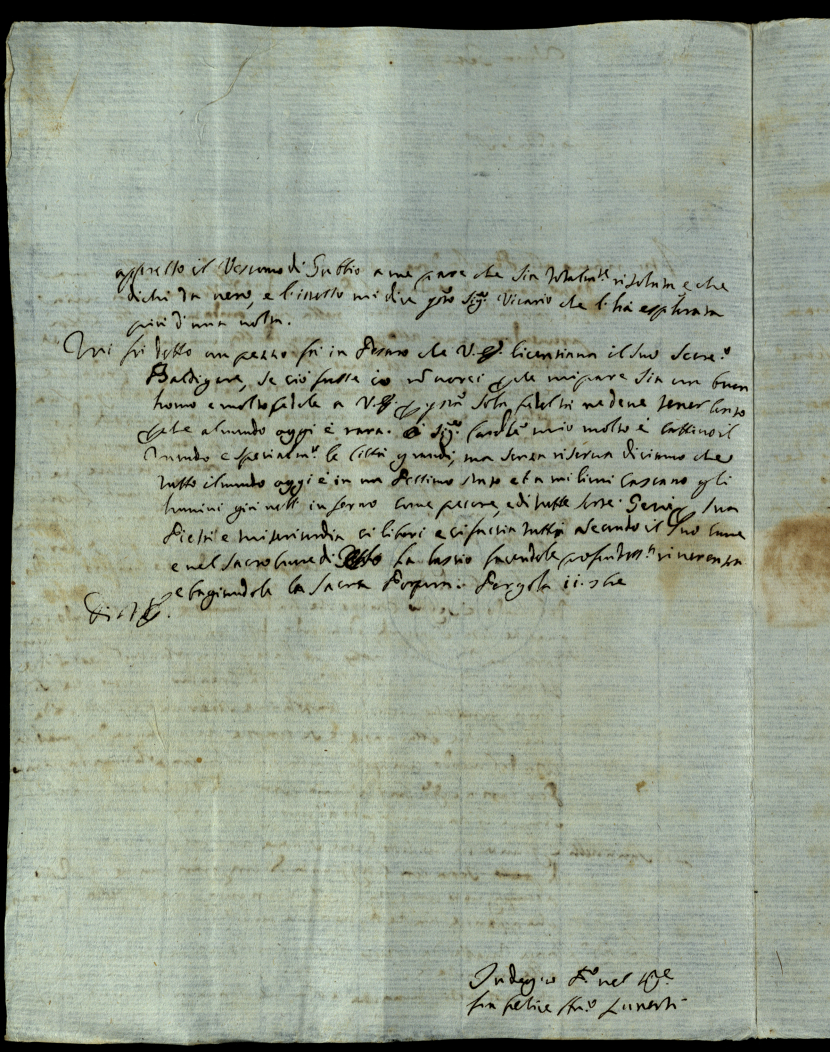 appresso il Vescovo di Gubbio a me pare che sia totalm.te risoluta e che
dichi da vero, e l'istesso mi dice q.to Sig.r Vicario che l'ha esplorata
più d'una volta.
Mi fu detto un pezzo fu in Pesaro che V.S. licentiava il suo Secre.o
Baldigara, se ciò fusse io nõ vorrei p.che mi pare sia un buon
homo e molto fedele a V.S. p sola fedeltà ne deve tener conto
p.che al mundo oggi è rara. Sig.r mio molto è cattivo il
mundo e specialm.te le città grandi, ma senza riserva diciamo che
tutto il mundo oggi è in un pessimo stato et a milioni cascano gli
humini giù nell' inferno come pecore, e di tutte sorte. p sua
Pietà e misericordia ci liberi e ci faccia tutti secundo il suo cuore
e nel sacro cuore di la lascio facendole profundiss.a riverenza
e bagiandole la Sacra Porpora. Pergola ii
Indegno S.o nel
fra felice Lunerti